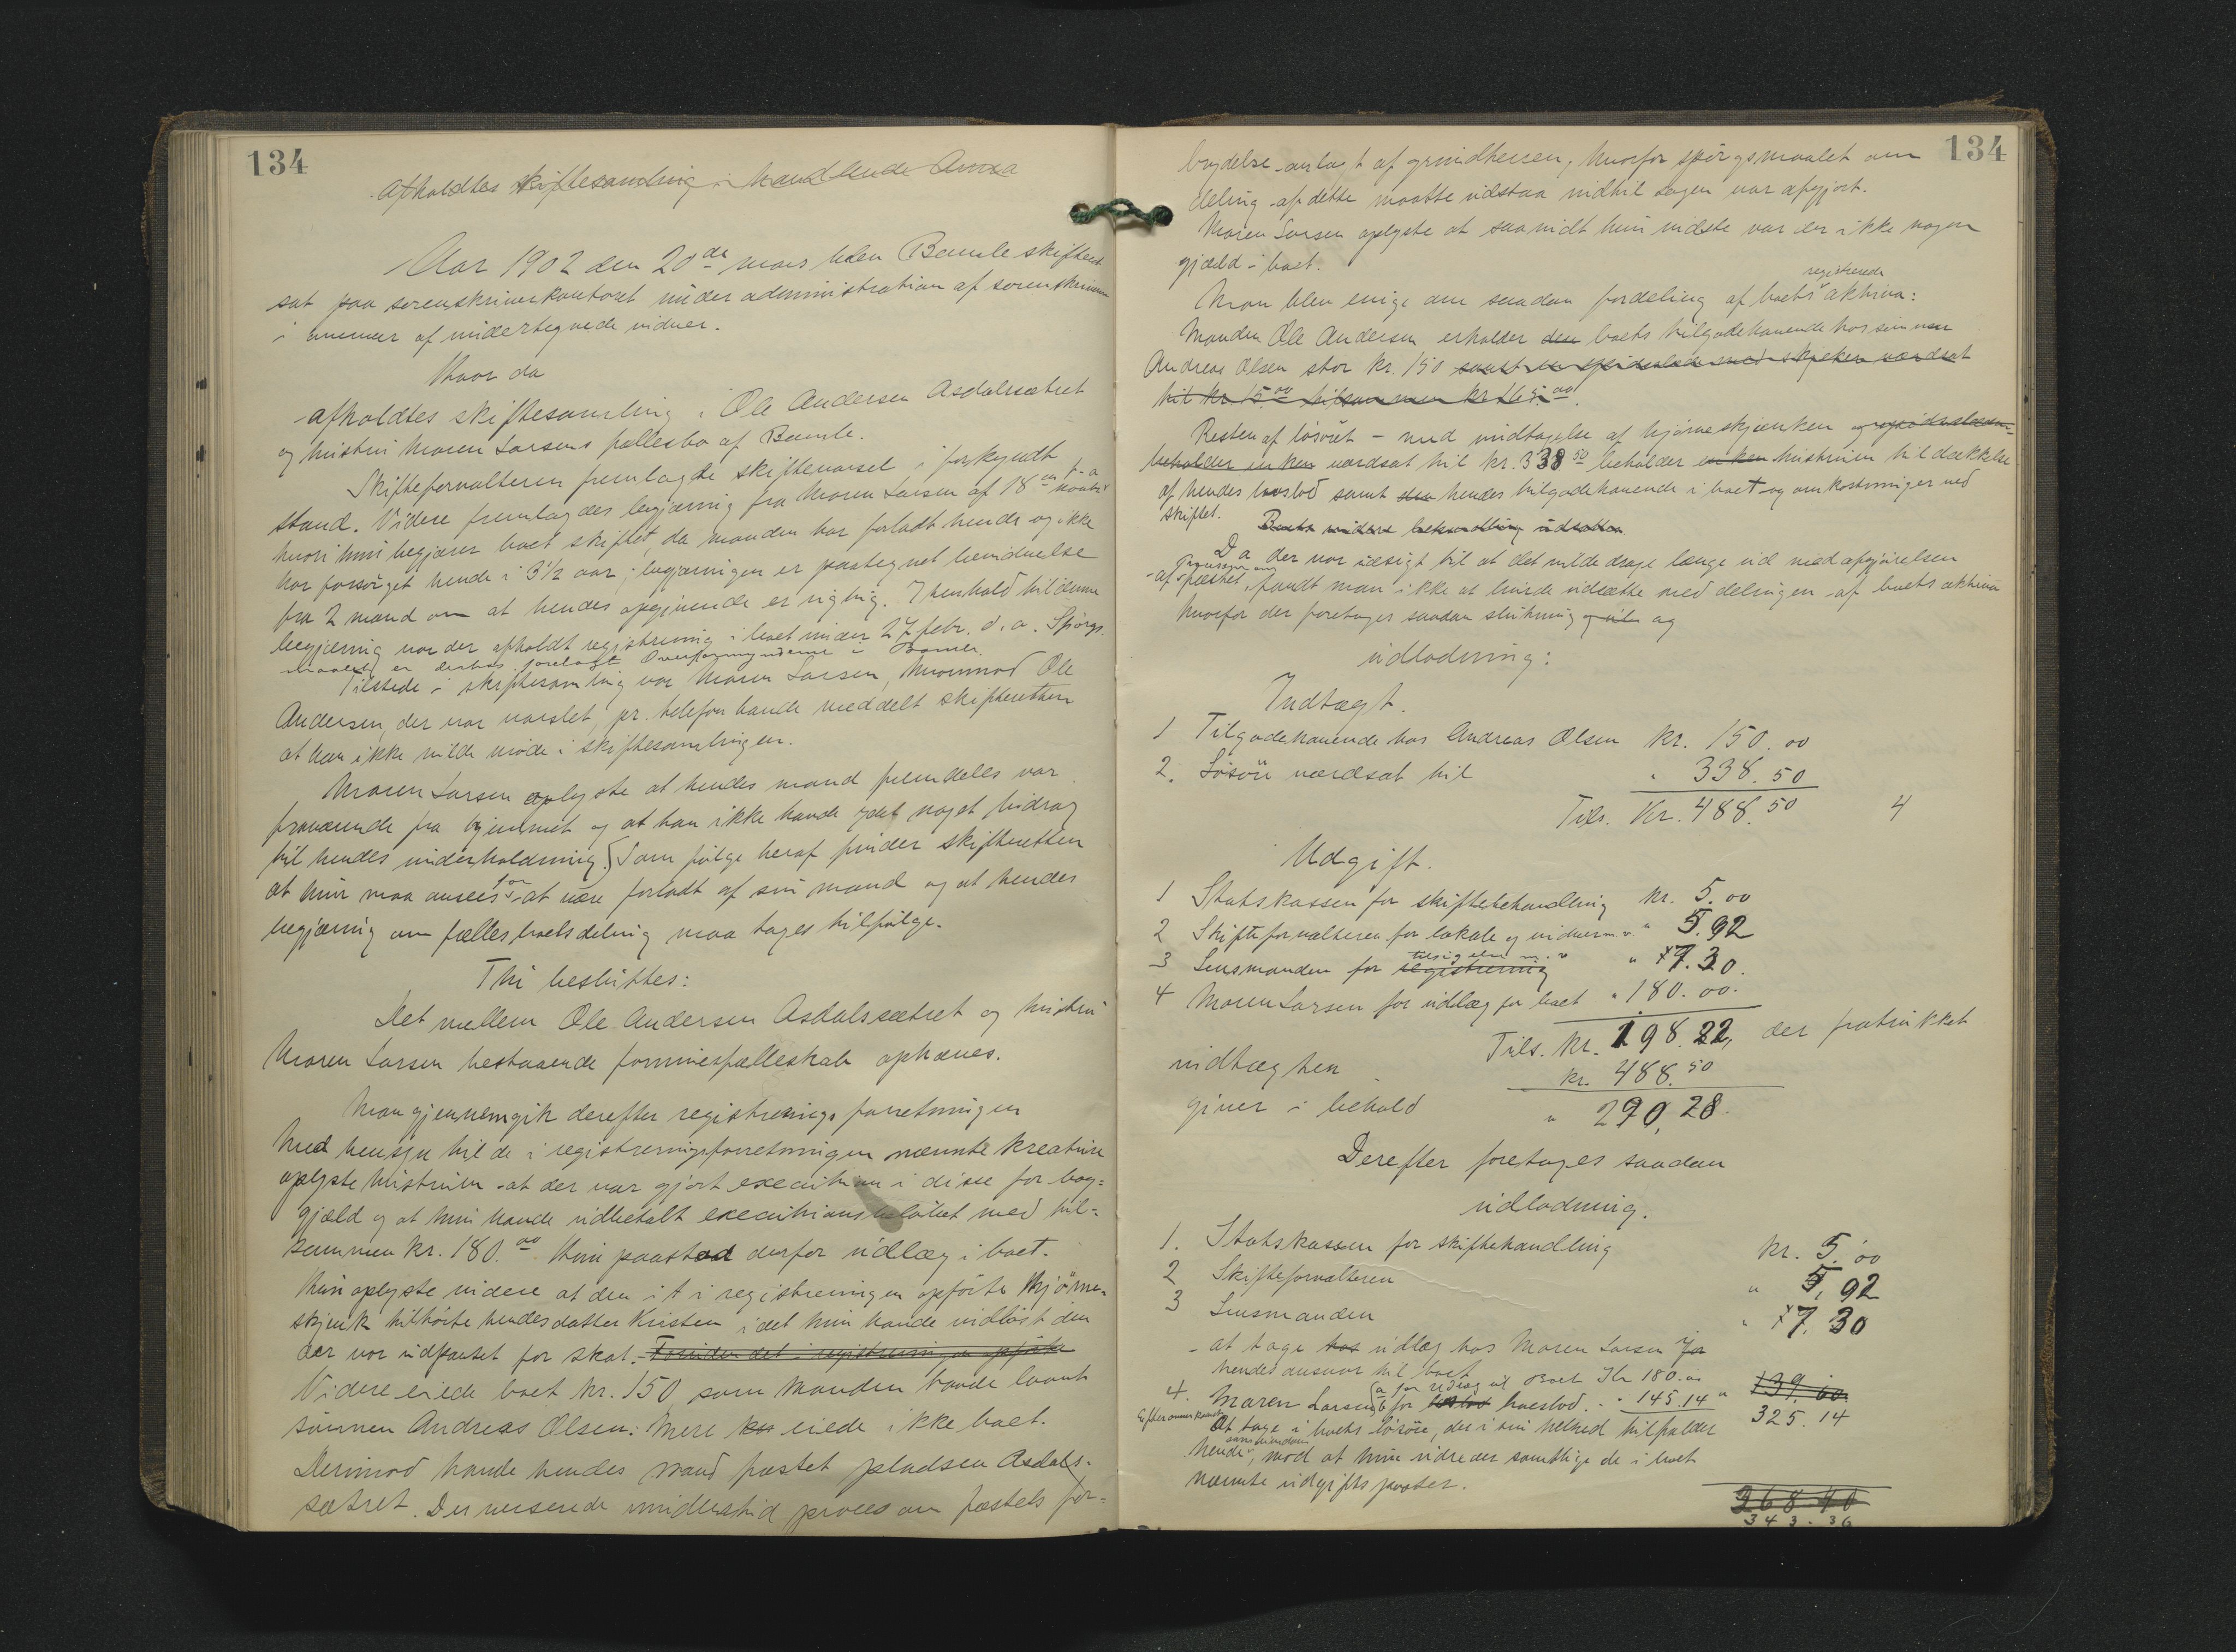 134
Afholdtes skiftesamling i
Aar 1902 den 20de mars blev Bamle skifteret
sat paa sorenskriverkontoret under administration af sorenskriveren
i nærvær af undertegnede vidner.
Hvor da
afholdtes skiftesamling i Ole Andersen Asdalssætret
og hustru Maren Larsens fællesbo af Bamle.
Skifteforvalteren fremlagte skiftevarsel i forkyndt
stand. Videre fremlagdes begjæring fra Maren Larsen af 18de
hvori hun begjærer boet skiftet, da manden har forladt hende og ikke
har forsörget hende i 3 1/2 aar; begjæringen er paategnet bevidnelse
fra 2 mænd om at hendes opgivende er rigtig. I henhold til denne
begjæring var der afholdt registrering i boet under 27 febr. d. a. Spörgs-
maalet er derhos forelagt Overformynderne i Bamle.
Tilstede i skiftesamling var Maren Larsen, hvorimod Ole
Andersen, der var varslet, pr. telefon havde meddelt skifteretten
at han ikke vilde møde i skiftesamlingen.
Maren Larsen oplyste at hendes mand fremdeles var
fraværende fra hjemmet og at han ikke havde ydet noget bidrag
til hendes underholdning. Som følge heraf finder skifteretten
at hun maa ansees for at være forladt af sin mand og at hendes
begjæring om fællesboets deling maa tages tilfølge.
Thi besluttes:
Det mellem Ole Andersen Asdalssætret og hustru
Maren Larsen bestaaende formuesfælleskab ophæves.
Man gjennemgik derefter registreringsforretningen
Med hensyn til de i registreringsforretningen nævnte kreature
oplyste hustruen at der var gjort execution i disse for byg-
gjæld og at hun havde udbetalt executionsbeløbet med til-
sammen kr. 180.00 Hun paastod derfor udlæg i boet.
Hun oplyste videre at den i registreringen opførte hjörne-
skjenk tilhörte hendes datter Kristen idet hun havde indløst den
der var udpantet for skat. Foruden det i registreringen opførte
Videre eiede boet kr. 150 som manden havde laant
sønnen Andreas Olsen: Mere eiede ikke boet.
Derimod havde hendes mand fæstet pladsen Asdals-
sætret. Der verserede imidlertid proces om fæstets for-
134
brydelse anlagt af grundherren, hvorfor spörgsmaalet om
deling af dette maatte udstaa indtil sagen var afgjort.
Maren Larsen oplyste at saavidt hun vidste var der ikke nogen
gjæld i boet.
registrerede
Man blev enige om saadan fordeling af boets aktiva:
Manden Ole Andersen erholder den boets tilgodehavende hos sønnen
Andreas Olsen stor kr. 150 samt en
til kr 15.00 tilsammen kr 165.00.
Resten af løsøret – med undtagelse af hjørneskjenken
beholder enken værdsat til kr. 338.50 beholder enken hustruen til dækkelse
af hendes boslod samt hendes tilgodehavende i boet og omkostninger ved
skiftet.
Boets videre behandling udsattes
Da der var udsigt til at det vilde drage længe ud med afgjørelsen
af processen om
fæstet, fandt man ikke at burde udsætte med delingen af boets aktiva
hvorfor der foretages saadan slutning og
udlodning:
Indtægt.
1 Tilgodehavende hos Andreas Olsen kr. 150.00
2. Løsöre værdsat til " 338.50
Tils. kr. 488.50
4
Udgift.
1 Statskassen for skiftebehandling kr. 5.00
2 Skifteforvalteren for lokale og vidner m.v. " 5.92
tilsigelse m.v
3 Lensmanden for registrering " 7.30
4 Maren Larsen for udlæg for boet " 180.00.
Tils. kr. 198.22, der fratrukket
indtægten kr. 488.50
giver i behold " 290,28.
Derefter foretages saadan
udlodning.
1. Statskassen for skiftebehandling kr. 5.00
2 Skifteforvalteren " 5,92
3 Lensmanden " 7.30
at tage hos udlæg hos Maren Larsen for
hendes ansvar til boet
4. Maren Larsen a for udlæg til boet Kr 180.00
b for boeslod. " 145.14 " 139.00
325.14
At tage i boets løsöre, der i sin helhed tilfalder
hende, mod at hun udreder samtlige de i boet
nævnte udgiftsposter.
268 40
343.36